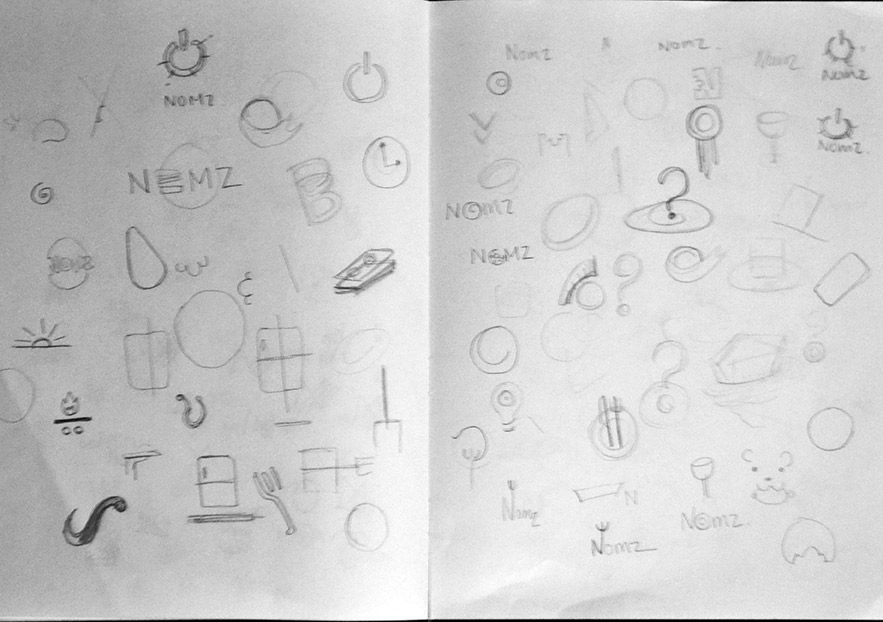 NOMZ
NOMZ
NOMZ
Nomz
Nomz.
Nomz
Nomz
Nomz.
NOMZ
NOMZ
N
Nomz
NOMZ.
Nomz